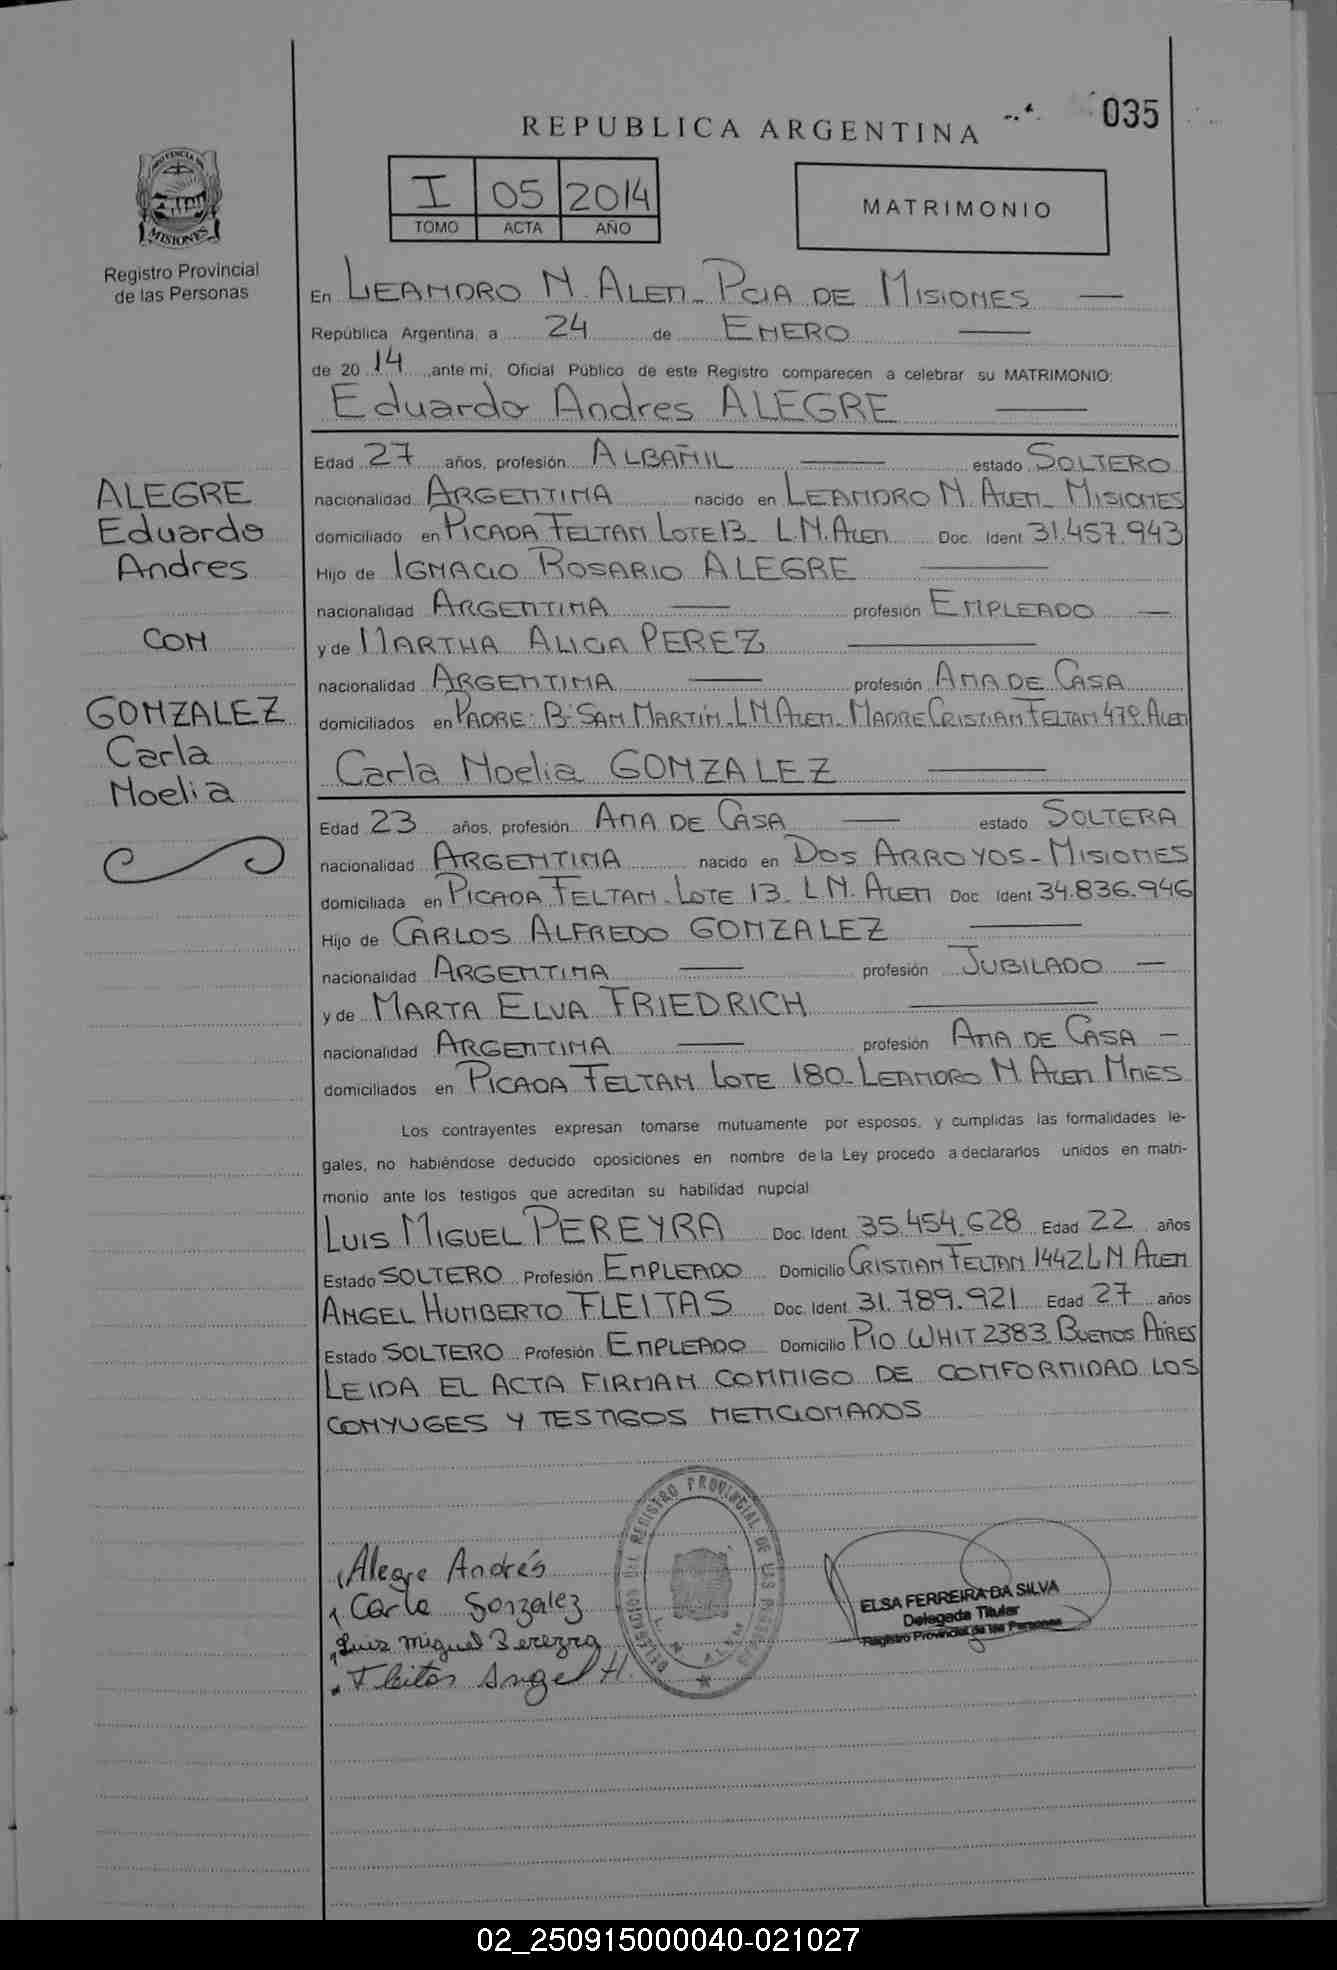 035
REPUBLICA ARGENTINA
PROVINCIA DE
MISIONES
Registro Provincial
de las Personas
I 05 2014
TOMO ACTA AÑO
MATRIMONIO
En LEANDRO N. ALEM - PCIA DE MISIONES —
República Argentina, a 24 de ENERO —
de 2014, ante mi, Oficial Público de este Registro comparecen a celebrar su MATRIMONIO:
Eduardo Andres ALEGRE —
Edad 27 años, profesión ALBAÑIL — estado SOLTERO
nacionalidad ARGENTINA nacido en LEANDRO N. ALEM - MISIONES
domiciliado en PICADA FELTAN LOTE 13 - L.N. ALEM Doc. Ident 31.457.943
Hijo de IGNACIO ROSARIO ALEGRE —
nacionalidad ARGENTINA — profesión EMPLEADO —
y de MARTHA ALICIA PEREZ —
nacionalidad ARGENTINA — profesión AMA DE CASA
domiciliados en PADRE: B: SAN MARTIN - L.N ALEM - MADRE CRISTIAN FELTAN 479 ALEM
ALEGRE
Eduardo
Andres
CON
GONZALEZ
Carla
Noelia
Carla Noelia GONZALEZ —
Edad 23 años, profesión AMA DE CASA — estado SOLTERA
nacionalidad ARGENTINA nacido en DOS ARROYOS - MISIONES
domiciliada en PICADA FELTAN - LOTE 13 - L.N. ALEM Doc. Ident 34.836.946
Hijo de CARLOS ALFREDO GONZALEZ —
nacionalidad ARGENTINA — profesión JUBILADO —
y de MARTA ELVA FRIEDRICH —
nacionalidad ARGENTINA — profesión AMA DE CASA —
domiciliados en PICADA FELTAN LOTE 180 - LEANDRO N ALEM MNES
Los contrayentes expresan tomarse mutuamente por esposos, y cumplidas las formalidades le-
gales, no habiéndose deducido oposiciones en nombre de la Ley procedo a declararlos unidos en matri-
monio ante los testigos que acreditan su habilidad nupcial
LUIS MIGUEL PEREYRA Doc. Ident. 35.454.628 Edad 22 años
Estado SOLTERO Profesión EMPLEADO Domicilio CRISTIAN FELTAN 1442 L N ALEM
ANGEL HUMBERTO FLEITAS Doc. Ident. 31.789.921 Edad 27 años
Estado SOLTERO Profesión EMPLEADO Domicilio PIO WHIT 2383 BUENOS AIRES
LEIDA EL ACTA FIRMAN CONMIGO DE CONFORMIDAD LOS
CONYUGES Y TESTIGOS MENCIONADOS
Alegre Andrés
Carla Gonzalez
Luis Miguel Pereyra
Fleitas Angel H.
DELEGACION DEL REGISTRO PROVINCIAL DE LAS PERSONAS
L. N. ALEM
ELSA FERREIRA DA SILVA
Delegada Titular
Registro Provincial de las Personas
02_250915000040-021027